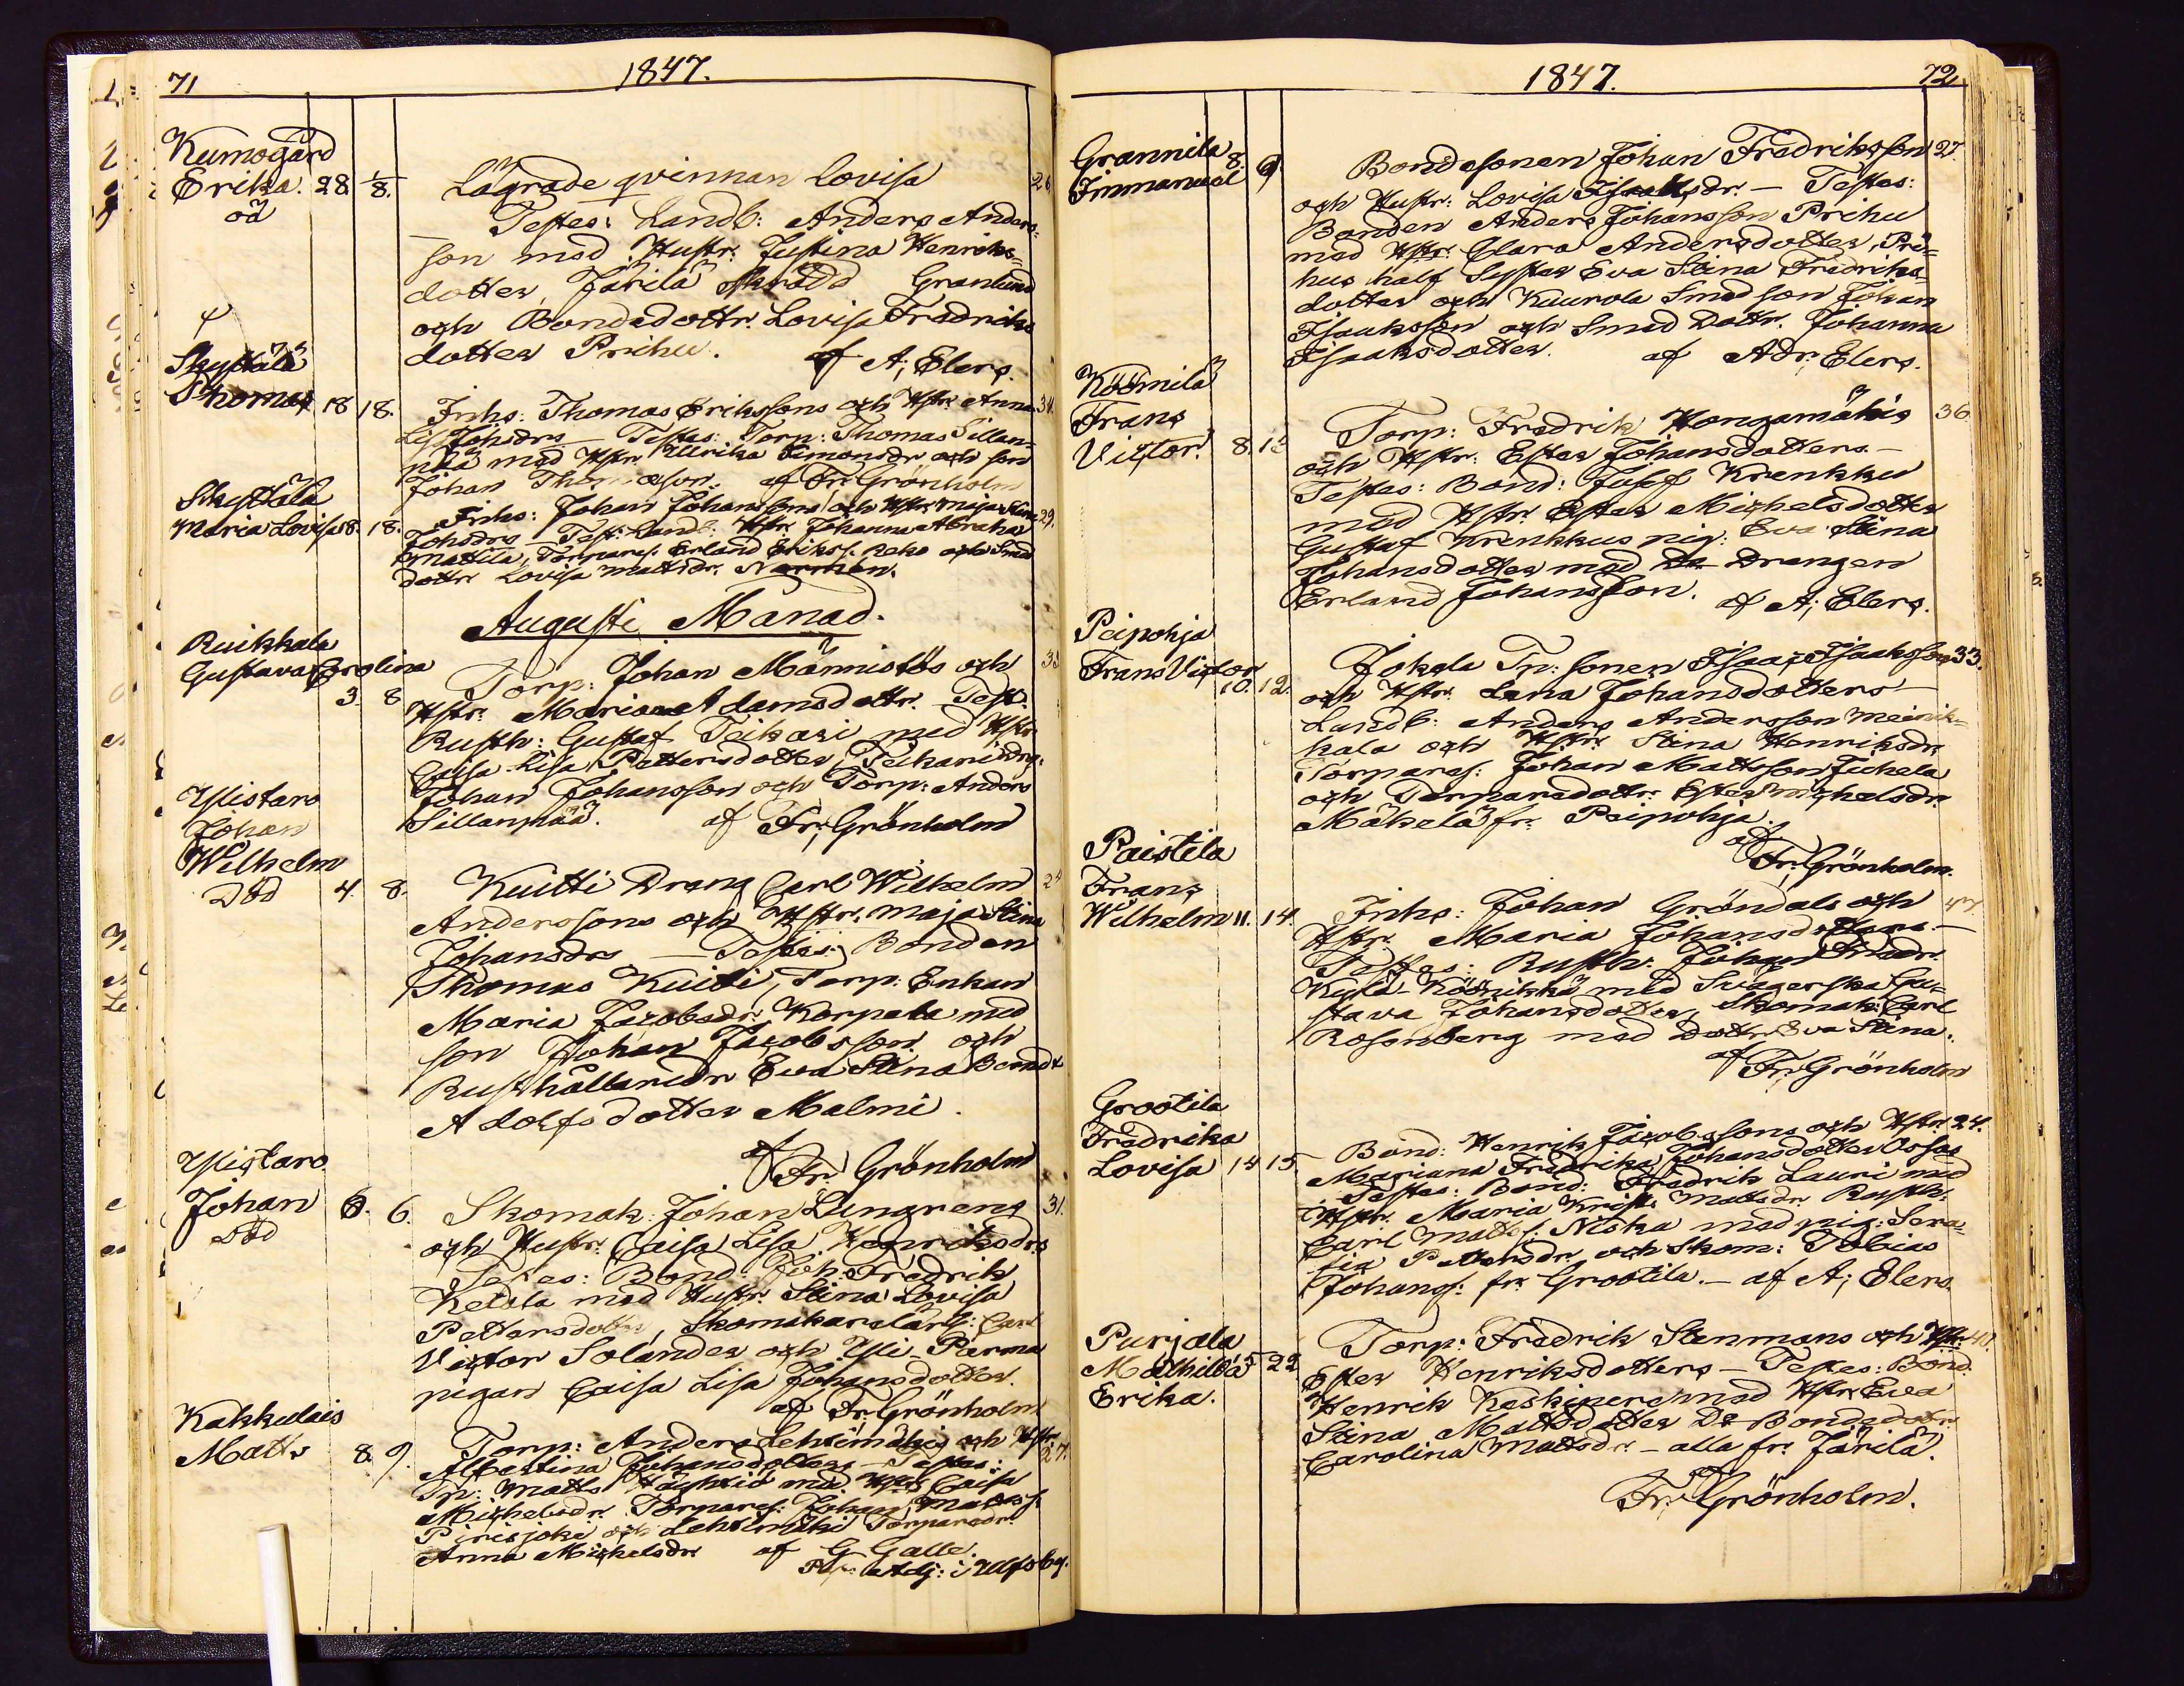 71
1847.
Kumogård
Erika. 28 1/8.
öä
Lägrade qvinnan Lovisa 26
Testes: Landb: Anders Anders=
son med Hustr. Justina Henriks=
dotter, Järilä Skrädd Granlund
och Bondedottr. Lovisa Fredriks
dotter Prihu. af A; Elers.
Skyttälä
Thomas 18 18.
Inhs: Thomas Erikssons och Hstr. Anna 34.
Lis Johsdrs — Testes: Torp: Thomas Sillan=
pää med Hstr Ulrika Simonsdr och son
Johan Thomasson. af Fr: Grönholm
Skyttälä
Maria Lovisa 8. 18.
Inhs: Johan Johanssons och Hstr. Maja Stina 29.
Johsdrs — Test: Landb: Hstr Johanna Abrahsdr
Mattila, Torpares. Erland Erikss. Reko och Smed
dottr Lovisa Mattsdr. Norrman.
Augusti Månad.
Ruikkala
Gustava Carolina
3. 8
Torp: Johan Männistös och 35
Hstr. Maria Adamsdottr. — Test.
Rusth: Gustaf Teikari med Hstr
Caisa Lisa Pettersdotter, Teikari Drg:
Johan Johansson och Torp: Anders
Sillanpää. af Fr; Grönholm
Ylistaro
Johan
Wilhelm
Död 4. 8.
Kuitti Dräng Carl Wilhelm 24
Anderssons och Hstr. Maja Stina
Johansdrs — Testes: Bonden
Thomas Kuitti, Torp: Enkan
Maria Jacobsdr. Korpela med
son Johan Jacobsson och
Rusthållaredr Eva Stina Berndt
Adolfsdotter Malmi.
af Fr. Grönholm
Ylistaro
Johan 6. 6.
Död
Skomak: Johan Lungrens 31.
och Hustr. Caisa Lisa Henriksdrs
Testes: Bond: Joh: Fredrik
Ketola med Hustr. Stina Lovisa
Pettersdotter, Skomakarelärl: Carl
Victor Solander och Yli Perma
pigan Caisa Lisa Johansdotter.
af Fr. Grönholm
Kakkulais
Matts 8. 9.
Torp: Anders Lehtimäkis och Hstr 27.
Albertina Johansdotters — Testes:
Tp: Matts Häyhtiö med Hstr Caisa
Michelsdr. Torpares: Johan Matss.
Pirisjoki och Lehtimäki Torparedr.
Anna Michelsdr af G Galle.
Adj: i Ulfsby.
1847.
72
Grannila 8. 9
Immanuel
Bondesonen Johan Fredriksson 27.
och Hustr: Lovisa Isaaksdr. — Testes:
Bonden Anders Johansson Prihu
med Hstr. Clara Andersdotter, Pri=
hus half Syster Eva Stina Fredriks=
dotter och Kuurola Smed son Johan
Isaaksson och Smed Dottr. Johanna
Isaaksdotter. af Adr. Elers.
Köömilä
Frans
Victor. 8. 15
Torp: Fredrik Hongamäkis 36.
och Hstr. Ester Johansdotters —
Testes: Bond: Josef Krenkku
med Hstr. Ester Michelsdotter
Gustaf Krenkkus pig: Eva Stina
Johansdotter med Do Drengen
Erland Johansson. af A; Elers.
Peipohja
Frans Victor
10. 12.
Jokela Tp: sonen Isaac Isaakssons 33.
och Hstr. Lena Johansdotters —
Landb: Anders Andersson Meinik=
kala och Hstr. Stina Henriksdr
Torpares: Johan Mattsson Jukela
och Torparedottr: Ester Michelsdr.
Mäkelä fr. Peipohja.
af
Fr. Grönholm.
Paistila
Frans
Wilhelm 11. 14.
Inhs: Johan Gröndals och 47.
Hstr. Maria Johansdotters —
Testes: Rusth: Johan Fredr.
Kylä-Köönikkä med Svägerska Gu=
stava Johansdotter, Skomak: Carl
Rosenberg med Dottr Eva Stina.
af Fr. Grönholm
Grootila
Fredrika
Lovisa 14 15.
Bond: Henrik Jacobssons och Hstr. 24.
Mariana Fredrika Johansdotter
Testes: Bond: Fredrik Lauri med
Hstr. Maria Krist: Mattsdr. Rusth:
Carl Matts. Niska med pig: Sera=
fia Pettersdr och Skom: Tobias
Johanss: fr. Grootila. — af A; Elers.
Purjala
Mathilda 5 22
Erika.
Torp: Fredrik Stenmans och Hstr. 40.
Ester Henriksdotters — Testes: Bond.
Henrik Keskinen med Hstr Eva
Stina Mattsdotter Do Bondedottr.
Carolina Mattsdr — alla fr: Järilä.
af
Fr. Grönholm.